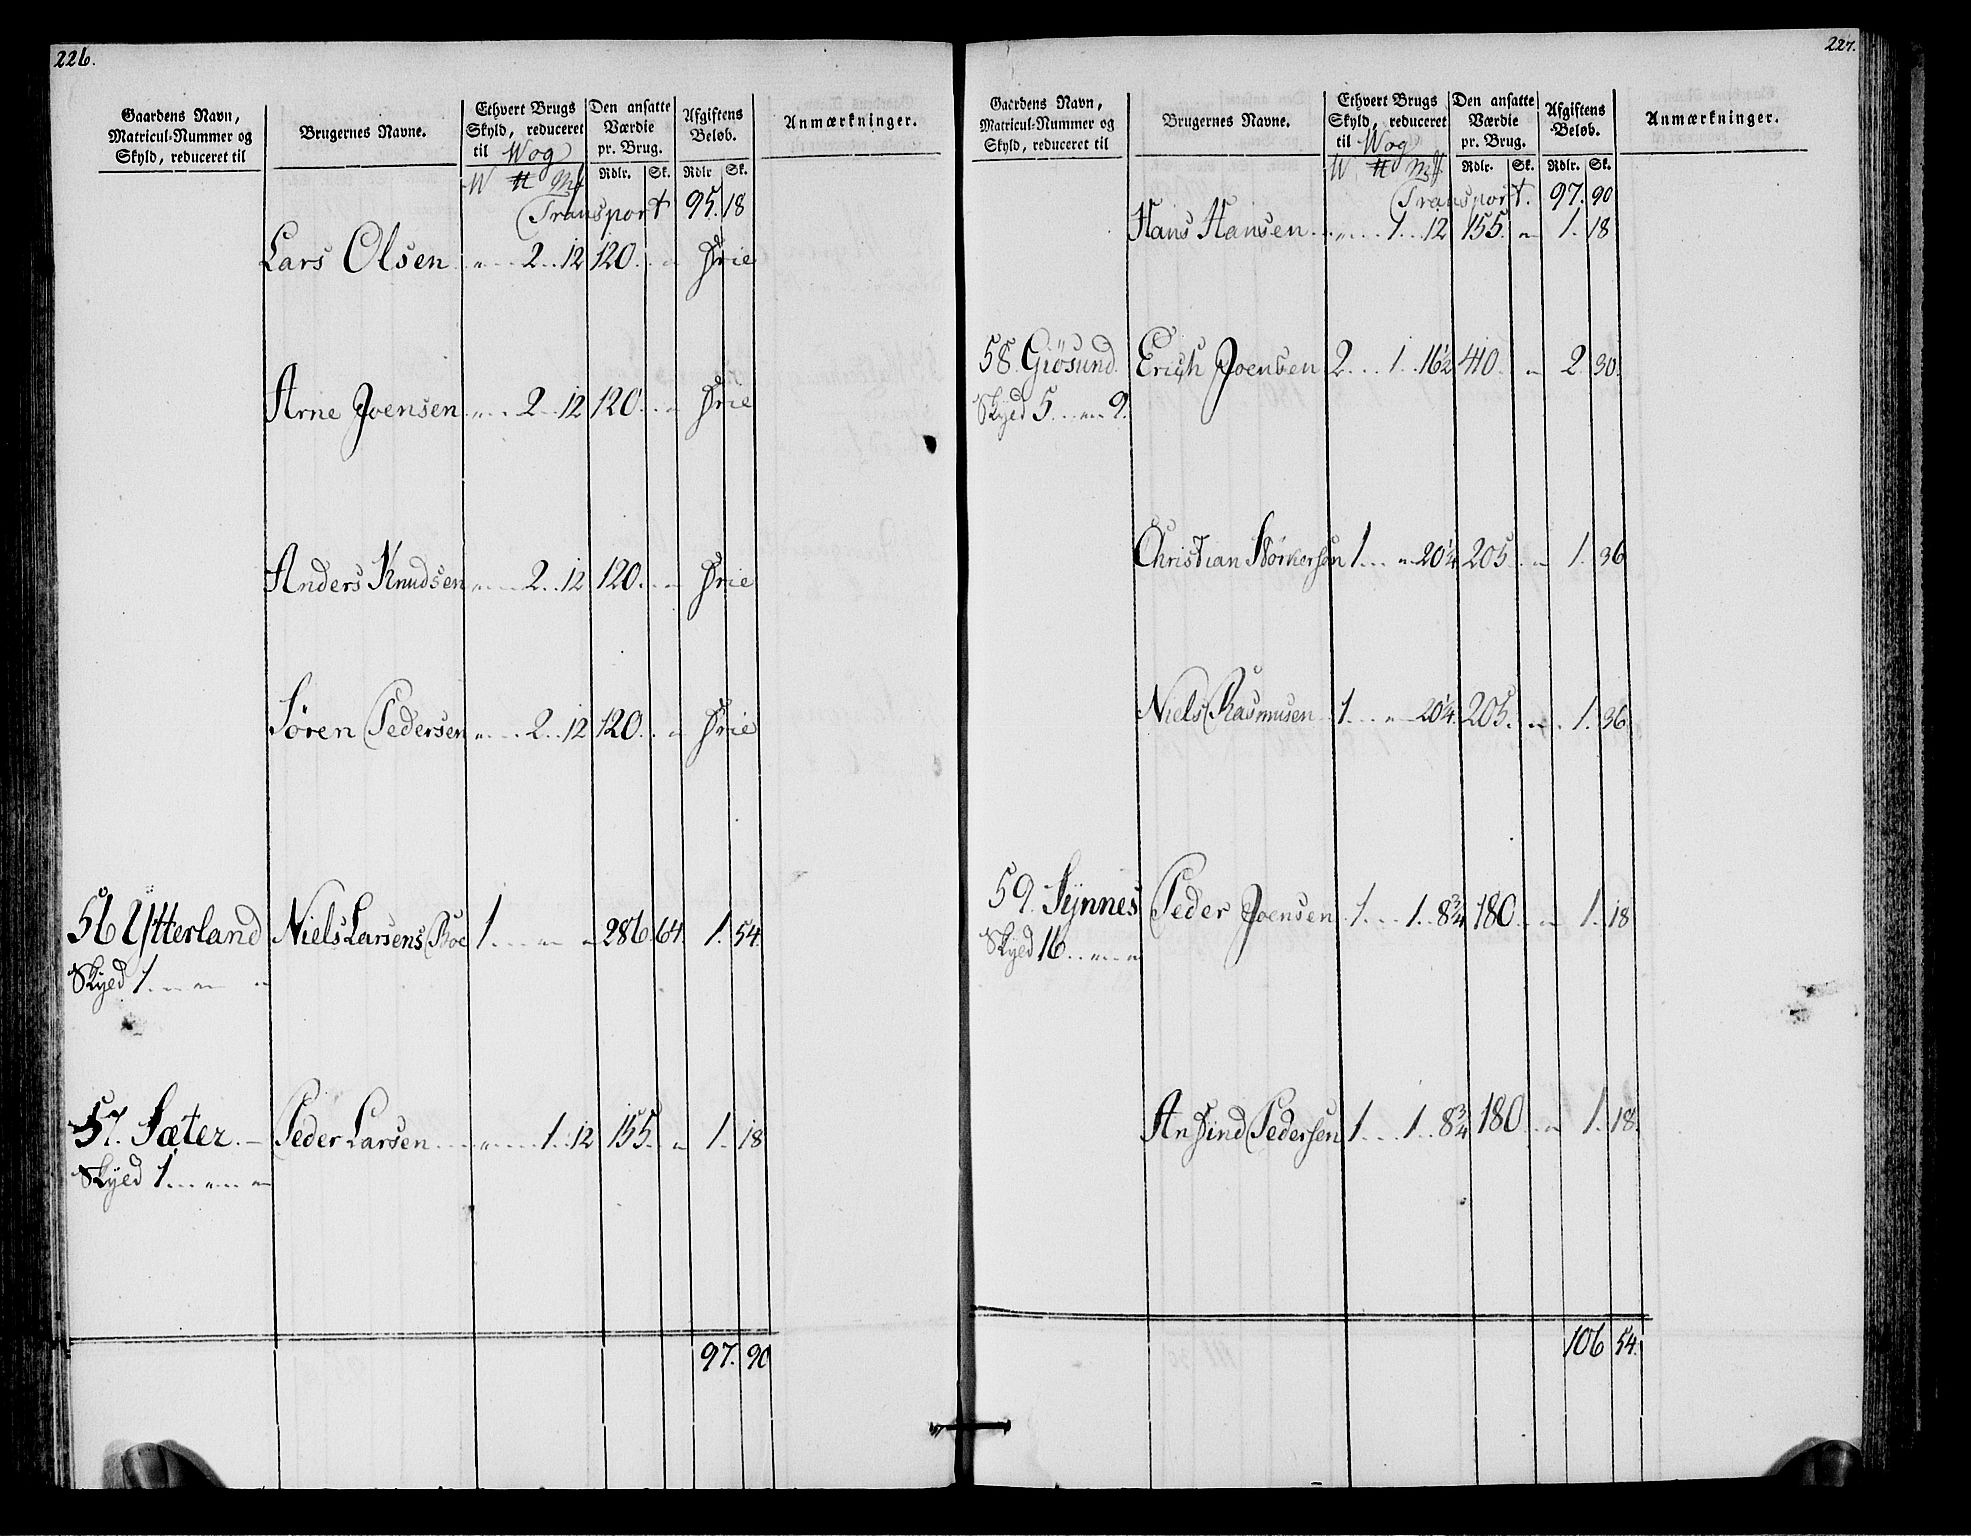 226.
Gaardens Navn, Matricul-Nummer og Skyld, reduceret til
Brugernes Navne.
Ethvert Brugs Skyld, reduceret til Wog
Den ansatte Værdie pr. Brug.
Afgiftens Beløb.
Anmærkninger.
W ℔ Mk Rdlr. Sk. Rdlr Sk.
Transport 95. 18
Lars Olsen „ 2 12 120. „ Frie
Arne Joensen „ 2 12 120. „ Frie
Anders Knudsen „ 2 12 120. „ Frie
Sören Pedersen „ 2 12 120. „ Frie
56 Ytterland Niels Larsens 1 „ „ 286 64. 1. 54
Skyed 1. „ „
57. Sæter. Peder Larsen „ 1 12 155. „ 1. 18
Skyed 1. „ „
97. 90
227.
Gaardens Navn, Matricul-Nummer og Skyld, reduceret til
Brugernes Navne.
Ethvert Brugs Skyld, reduceret til Wog
Den ansatte Værdie pr. Brug.
Afgiftens Beløb.
Anmærkninger.
W ℔ Mk Rdlr. Sk. Rdlr. Sk.
Transport. 97. 90
Hans Hansen „ 1 12 155. „ 1. 18
58. Giösund. Erich Joensen 2 1 16½ 410. „ 2. 30.
Skyed 5. „ 9.
Christian 1 „ 20¼ 205. „ 1. 36
Niels Rasmusen 1 „ 20¼ 205. „ 1. 36
59. Synnes Peder Joensen 1 1 8¾ 180 „ 1. 18
Skyed 16. „ „
Ansind Pedersen 1 1 8¾ 180 „ 1. 18.
106 54.